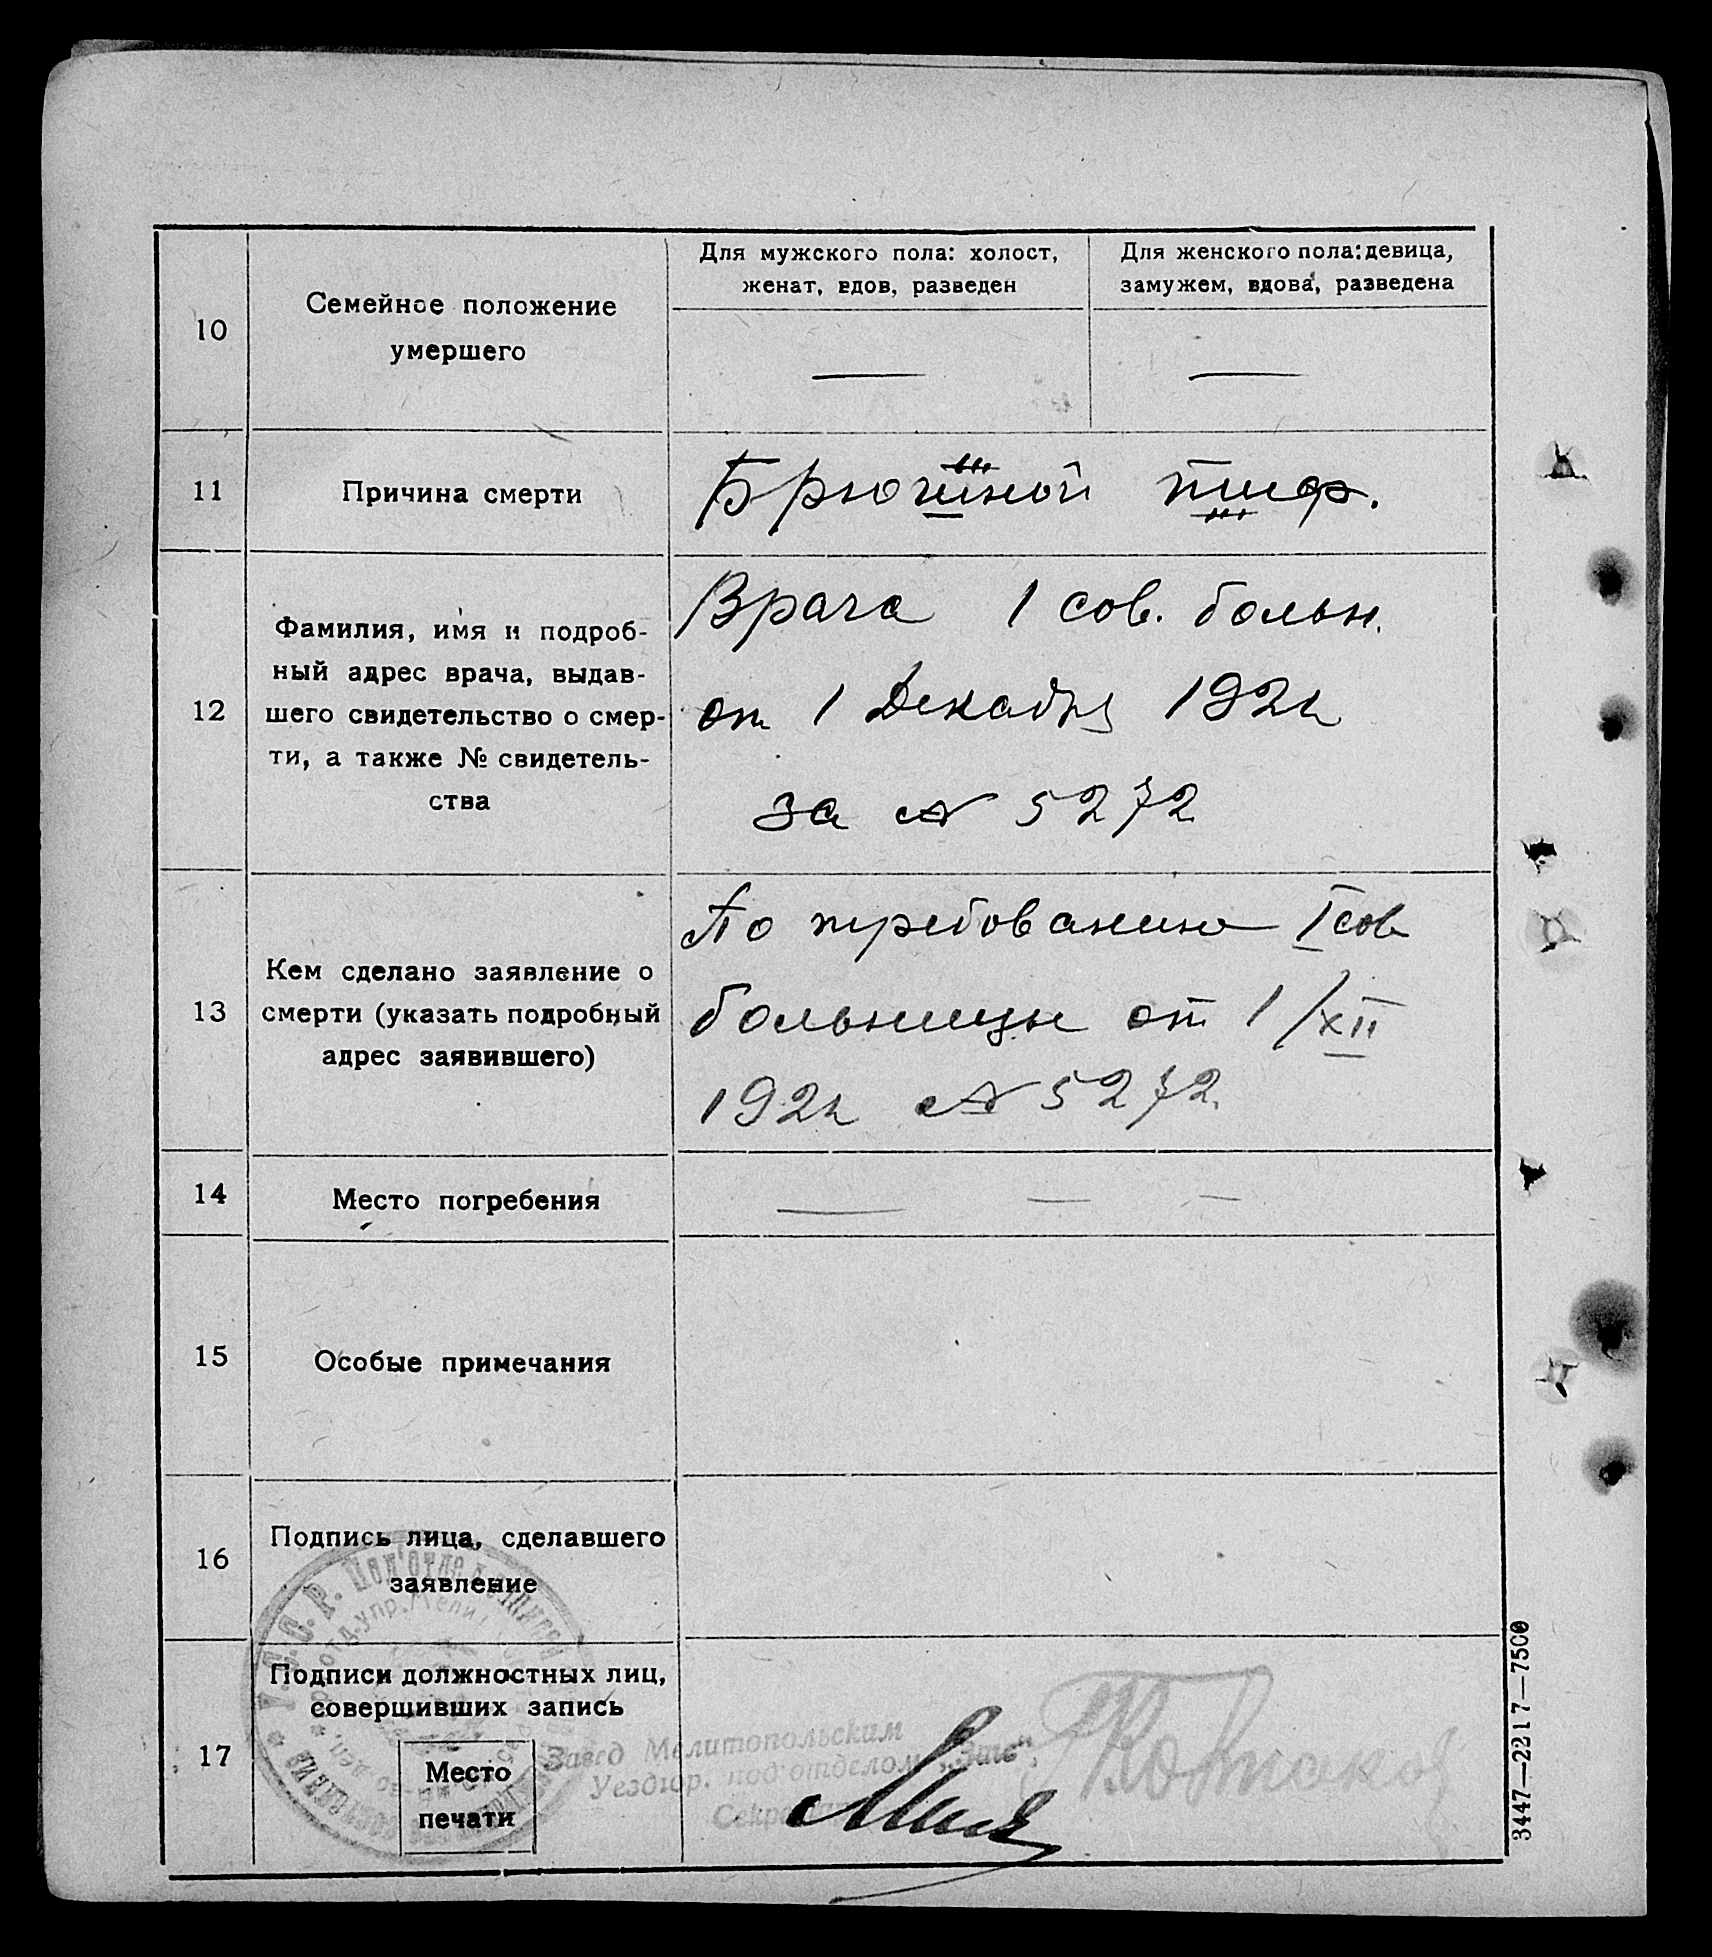 10
Семейное положение
умершего
Для мужского пола: холост,
женат, вдов, разведен
Для женского пола: девица,
замужем, вдова, разведена
11
Причина смерти
Брюшной тиф.
12
Фамилия, имя и подроб-
ный адрес врача, выдав-
шего свидетельство о смер-
ти, а также № свидетель-
ства
Врача 1 сов. больн.
от 1 Декабря 192
за № 5272
13
Кем сделано заявление о
смерти (указать подробный
адрес заявившего)
По требованию I сов
больницы от 1/XII
192 № 5272.
14
Место погребения
15
Особые примечания
16
Подпись лица, сделавшего
заявление
17
Подписи должностных лиц,
совершивших запись
Место
печати
Завед Мелитопольским
Уезднр. под'отделом „Загс“,
3447—2217—7500